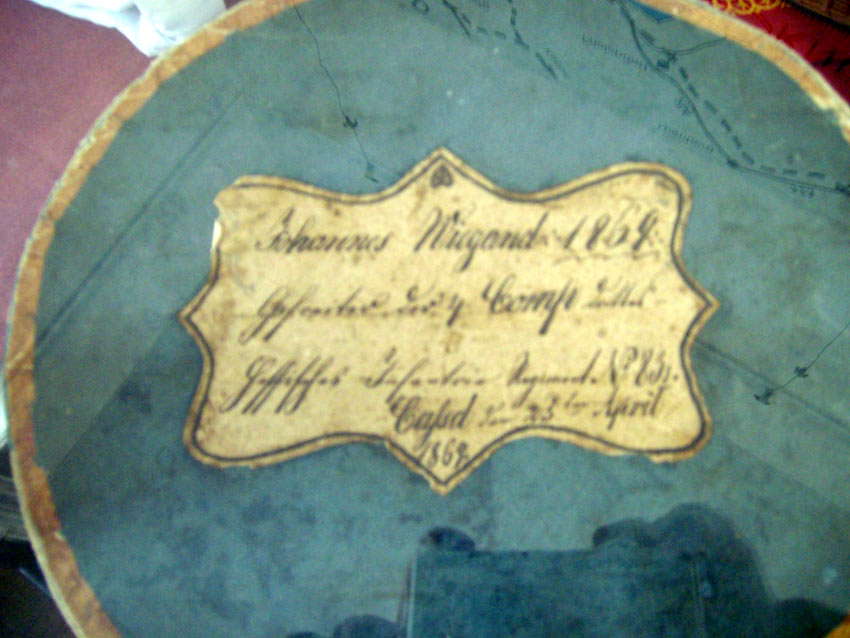 Johannes Wiegand 1869.
Gefreiter der Comp
Hessisches Infanterie Regiment No 83.
Cassel den 25ten April
1869